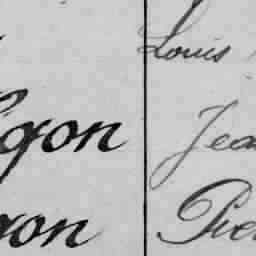 Louis
gon Jea
on Pie